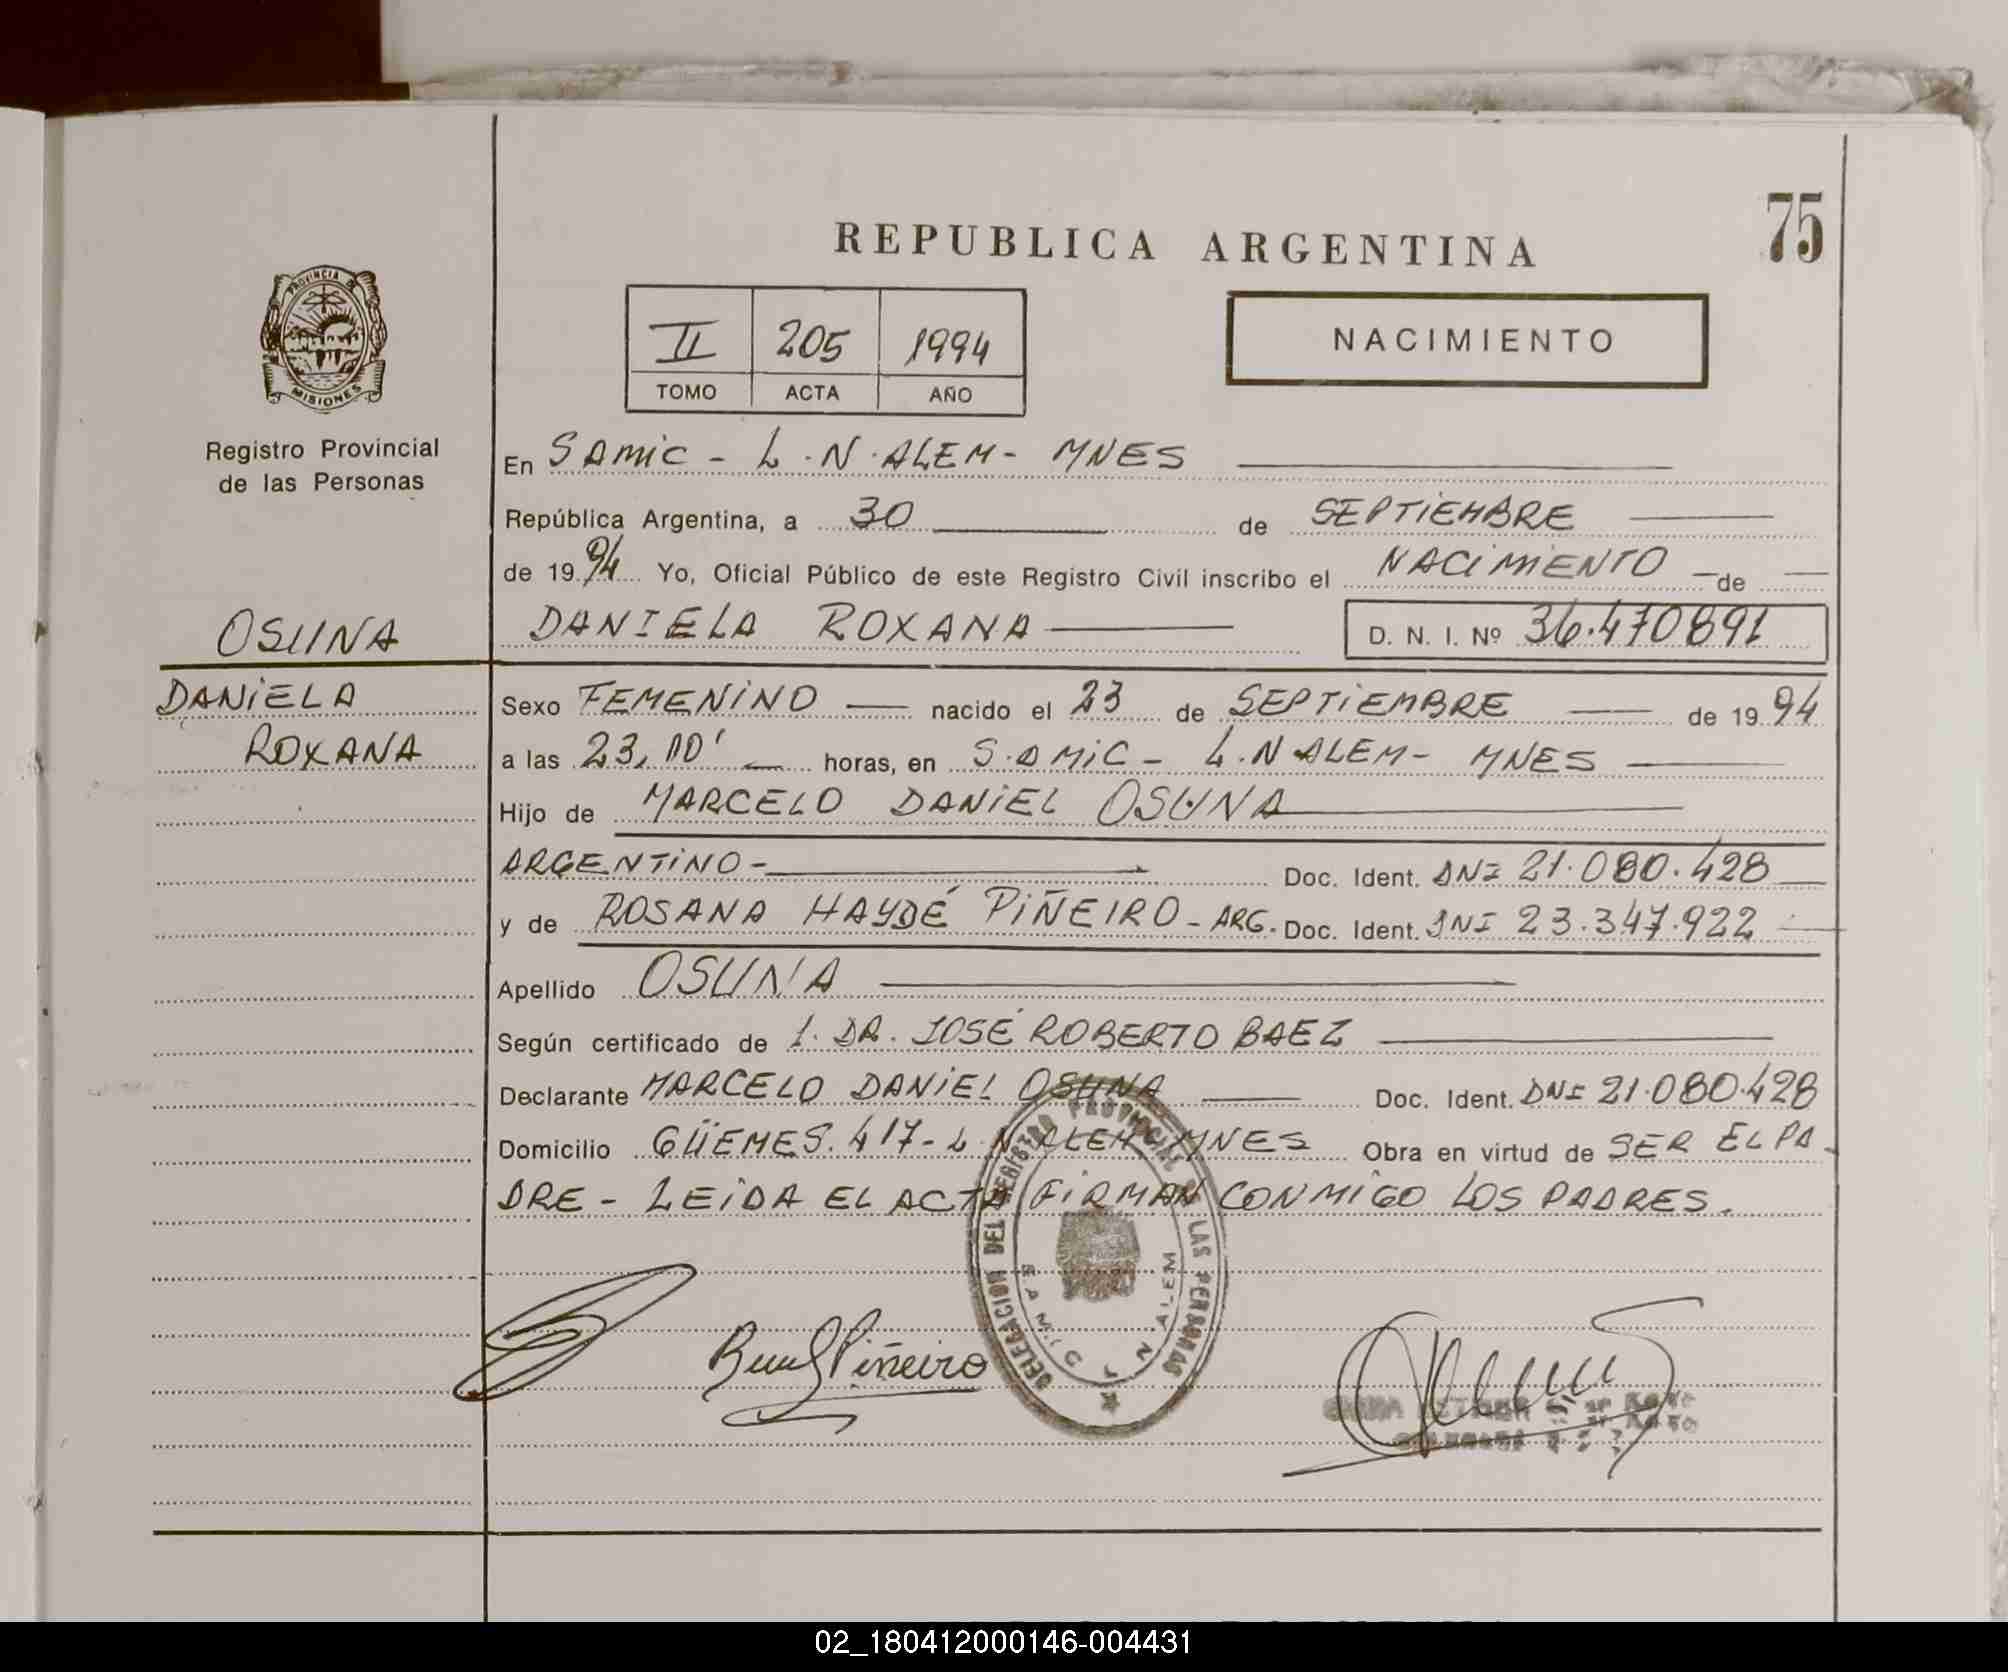 75
REPUBLICA ARGENTINA
PROVINCIA DE
MISIONES
Registro Provincial
de las Personas
II 205 1994
TOMO ACTA AÑO
NACIMIENTO
En SAMIC - L.N.ALEM - MNES
República Argentina, a 30 de SEPTIEMBRE
de 1994 Yo, Oficial Público de este Registro Civil inscribo el NACIMIENTO de
DANIELA ROXANA D. N. I. Nº 36.470891
OSUNA
DANIELA
ROXANA
Sexo FEMENINO nacido el 23 de SEPTIEMBRE de 1994
a las 23,10' horas, en S.AMIC - L.N ALEM - MNES
Hijo de MARCELO DANIEL OSUNA
ARGENTINO - Doc. Ident. DNI 21.080.428
y de ROSANA HAYDÉ PIÑEIRO - ARG. Doc. Ident. DNI 23.347.922
Apellido OSUNA
Según certificado de 1. DR. JOSÉ ROBERTO BAEZ
Declarante MARCELO DANIEL OSUNA Doc. Ident. DNI 21.080.428
Domicilio GÜEMES. 417 - L.N.ALEM MNES Obra en virtud de SER EL PA-
DRE - LEIDA EL ACTA FIRMAN CONMIGO LOS PADRES.
DELEGACION DEL REGISTRO PROVINCIAL DE LAS PERSONAS
S.A.M.I.C L N ALEM
Piñeiro
02_180412000146-004431